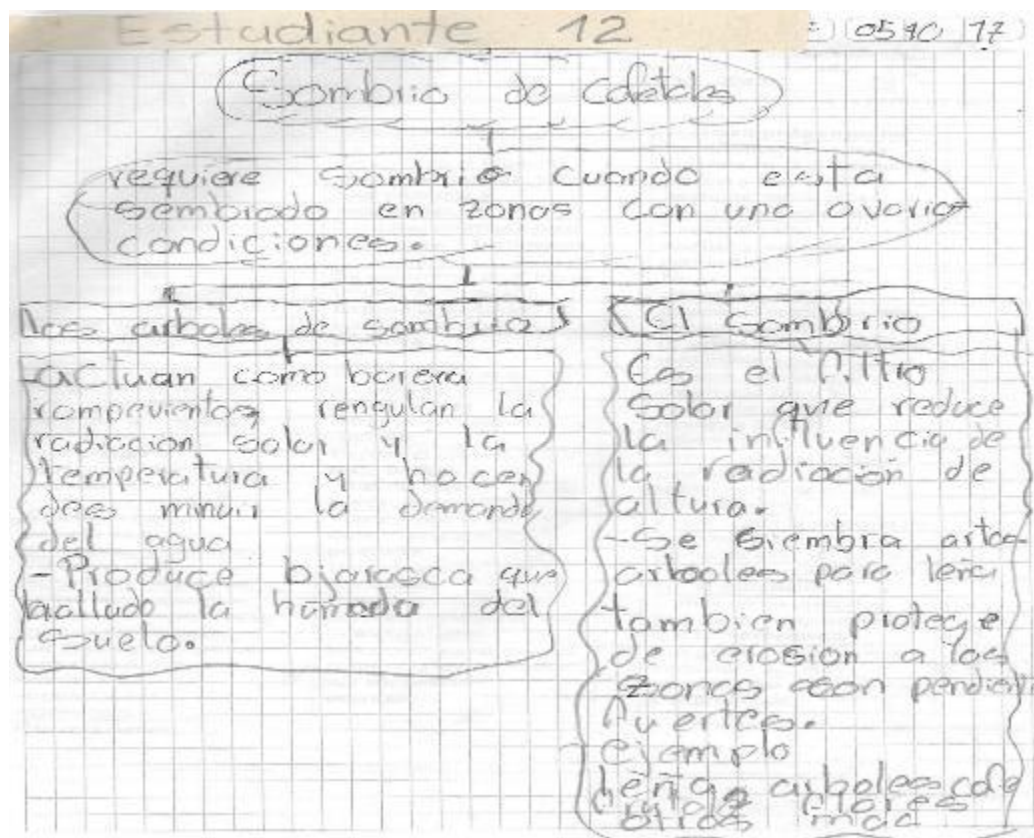 Estudiante 12
05 10 17
Sombrio de cafetales
requiere sombrio cuando esta
sembrado en zonas con una o varias
condiciones.
los arboles de sombrio
-actuan como barera
rompevientos rengulan la
radiacion solar y la
temperatura y hacen
dees minuir la demanda
del agua
-Produce bjarasca que
la humeda del
suelo.
El sombrio
Es el filtro
solar que reduce
la influencia de
la radiación de
altura.
-se siembra
arbolees para leña
tambien protege
de erosion a las
zonas con pendient
fuertes.
ejemplo
leña arbolees cafe
otros